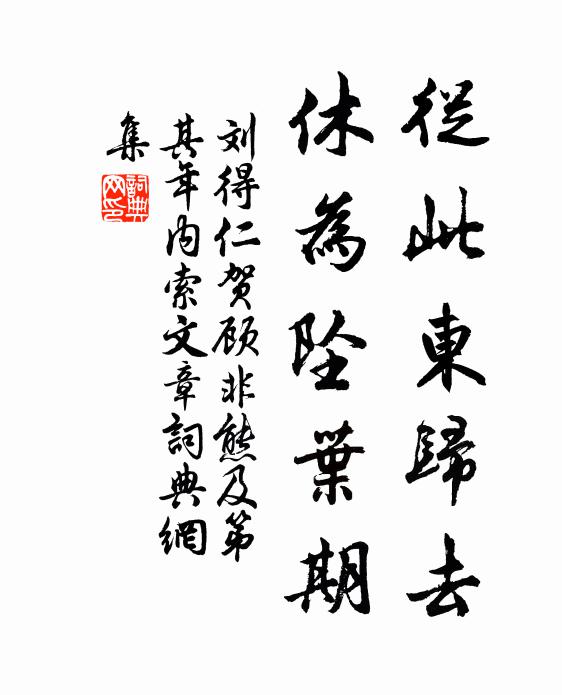 從此東歸去
休為墜葉期
刘得仁贺顾非熊及第
其年内索文章詞典網
集
詞典
网印